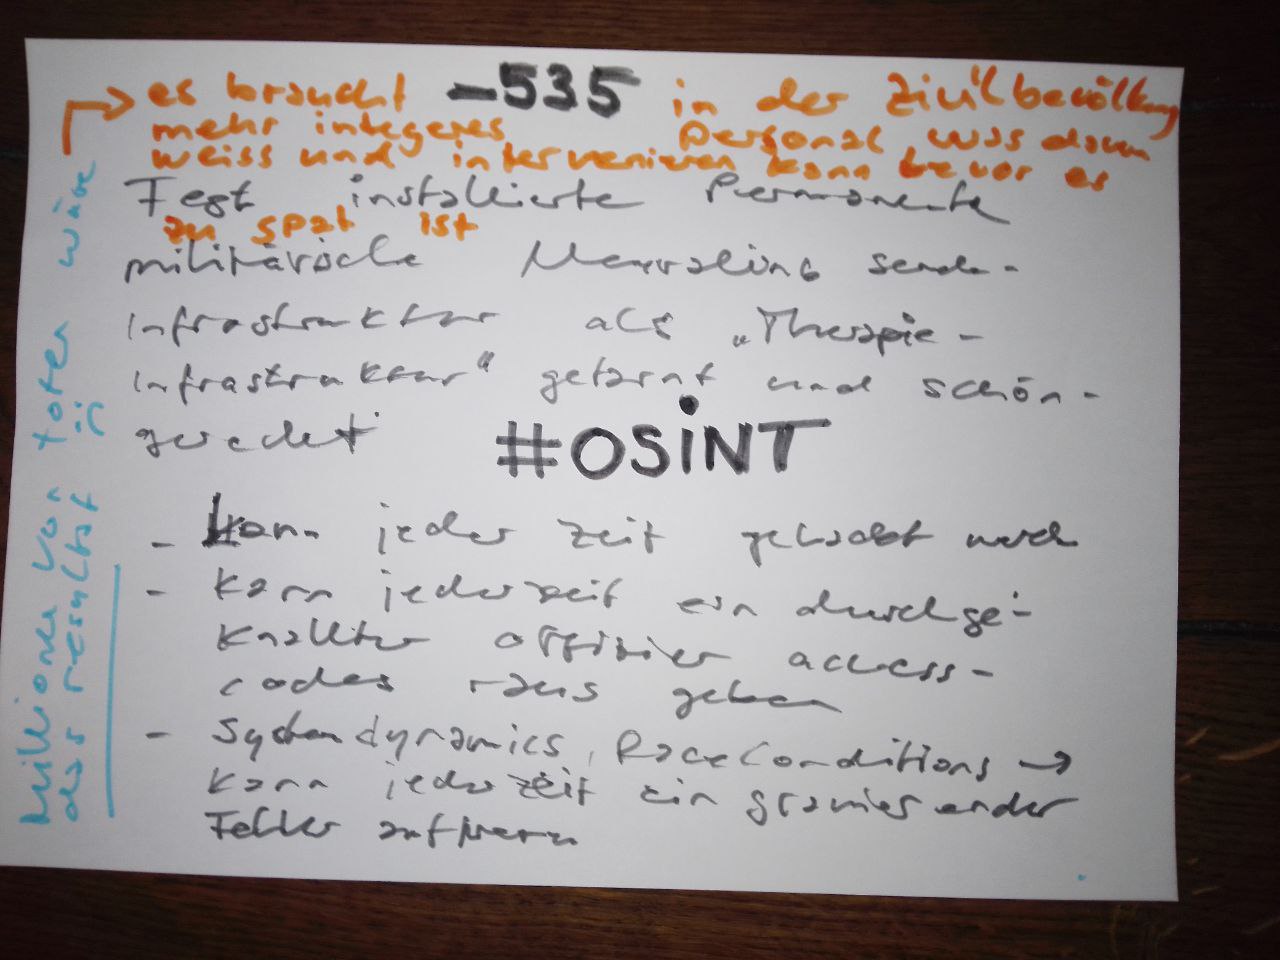 es braucht -535 in der Zivilbevölkerung
mehr integeres Personal was davon
weiss und intervenieren kann bevor es
zu spät ist
Fest installierte Permanente
militärische sende-
infrastruktur als „Therapie-
infrastruktur“ getarnt und schön-
geredet
#OSiNT
- kann jeder zeit gehackt werden
- kann jederzeit ein durchge-
knallter offizier access-
codes raus geben
- Systemdynamics, RaceConditions →
kann jederzeit ein gravierender
Fehler auftreten
Millionen von toten wäre
das resultat :(